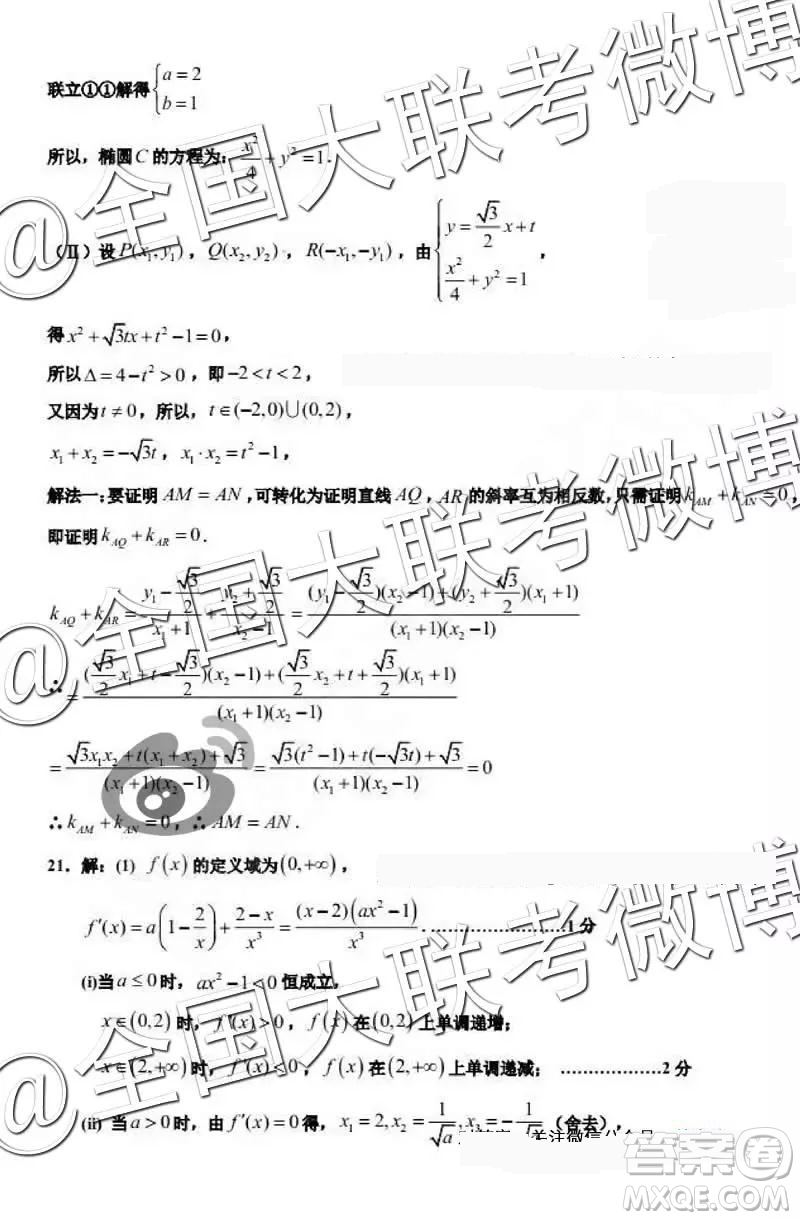 联立①①解得{a=2 b=1
所以，椭圆C的方程为：x²/4+y²=1．
（Ⅱ）设P(x₁,y₁)，Q(x₂,y₂)，R(−x₁,−y₁)，由{y=√3/2 x+t x²/4+y²=1，
得x²+√3tx+t²−1=0，
所以Δ=4−t²>0，即−2<t<2，
又因为t≠0，所以，t∈(−2,0)∪(0,2)，
x₁+x₂=−√3t，x₁·x₂=t²−1，
解法一：要证明AM=AN，可转化为证明直线AQ，AR的斜率互为相反数，只需证明k_AM+k_AN=0，
即证明k_AQ+k_AR=0．
k_AQ+k_AR=(y₁−√3/2)/(x₁+1)+(y₂+√3/2)/(x₂−1)=((y₁−√3/2)(x₂−1)+(y₂+√3/2)(x₁+1))/((x₁+1)(x₂−1))
∴=((√3/2 x₁+t−√3/2)(x₂−1)+(√3/2 x₂+t+√3/2)(x₁+1))/((x₁+1)(x₂−1))
=(√3x₁x₂+t(x₁+x₂)+√3)/((x₁+1)(x₂−1))=(√3(t²−1)+t(−√3t)+√3)/((x₁+1)(x₂−1))=0
∴k_AM+k_AN=0，∴AM=AN．
21．解：(1) f(x)的定义域为(0,+∞)，
f′(x)=a(1−2/x)+(2−x)/x³=(x−2)(ax²−1)/x³．……………………1分
(i)当a≤0时，ax²−1<0恒成立，
x∈(0,2)时，f′(x)>0，f(x)在(0,2)上单调递增；
x∈(2,+∞)时，f′(x)<0，f(x)在(2,+∞)上单调递减；………………2分
(ii) 当a>0时，由f′(x)=0得，x₁=2,x₂=1/√a,x₃=−1/√a（舍去），
@全国大联考微博
@全国大联考微博
@全国大联考微博
答案卷
MXQE.COM